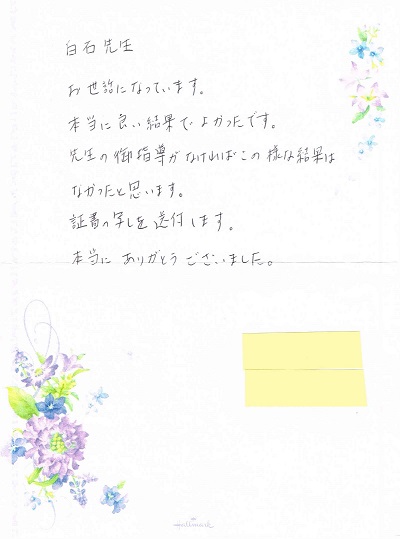 白石先生
お世話になっています。
本当に良い結果でよかったです。
先生の御指導がなければこの様な結果は
なかったと思います。
証書の写しを送付します。
本当にありがとうございました。
Hallmark